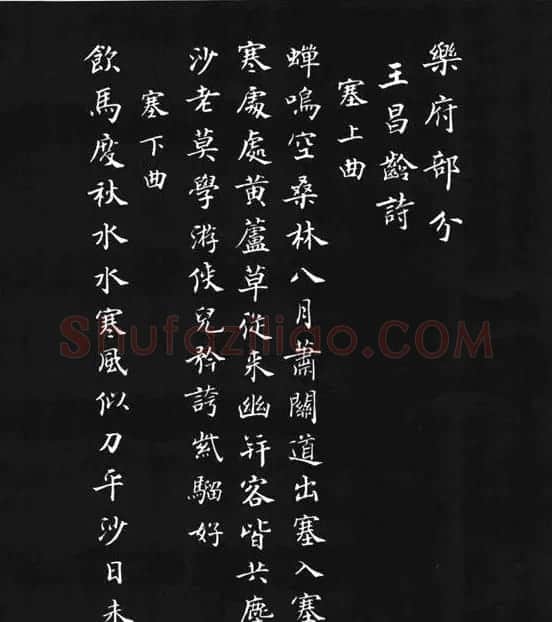 樂府部分
王昌齡詩
塞上曲
蟬鳴空桑林八月蕭關道出塞入塞
寒處處黃蘆草從来幽并客皆共塵
沙老莫學游俠兒矜誇紫騮好
塞下曲
飲馬度秋水水寒風似刀平沙日未
Shufaziliao.COM